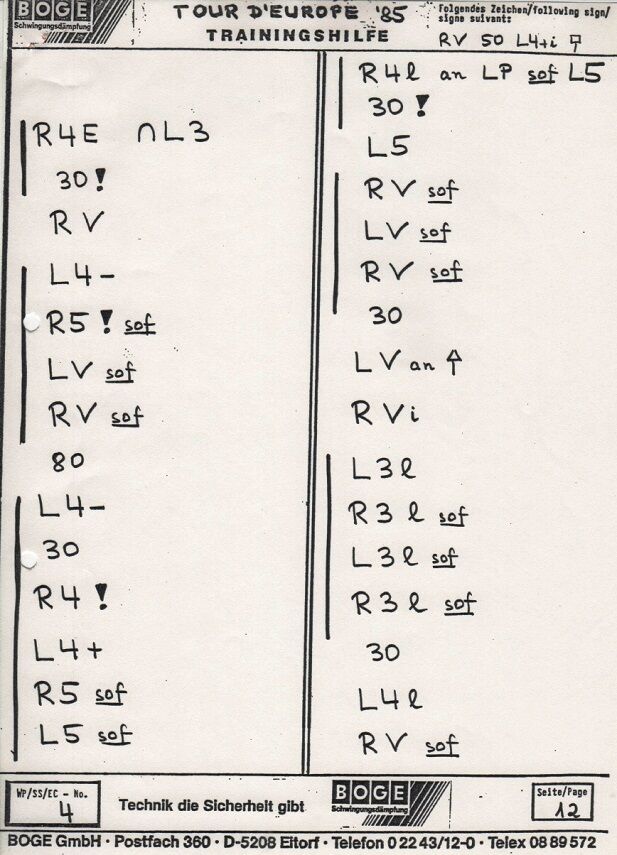 BOGE
Schwingungsdämpfung
TOUR D'EUROPE '85
TRAININGSHILFE
Folgendes Zeichen/following sign/
signe suivant:
RV 50 L4+i
R4E ∩L3
30!
RV
L4-
R5! sof
LV sof
RV sof
80
L4-
30
R4!
L4+
R5 sof
L5 sof
R4l an LP sof L5
30!
L5
RV sof
LV sof
RV sof
30
LV an
RVi
L3l
R3l sof
L3l sof
R3l sof
30
L4l
RV sof
WP/SS/EC - No.
4
Technik die Sicherheit gibt
BOGE
Schwingungsdämpfung
Seite/Page
12
BOGE GmbH · Postfach 360 · D-5208 Eitorf · Telefon 0 22 43/12-0 · Telex 08 89 572